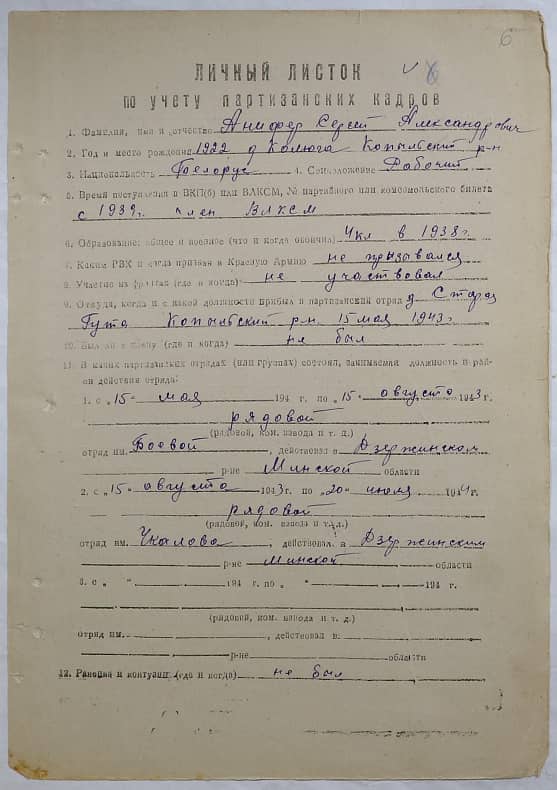 6
ЛИЧНЫЙ ЛИСТОК
по учету партизанских кадров
1. Фамилия, имя и отчество Анифер Сергей Александрович
2. Год и место рождения 1922 д Колюга Копыльский р-н
3. Национальность Белорус 4. Соцположение Рабочий
5. Время поступления в ВКП(б) или ВЛКСМ, № партийного или комсомольского билета
с 1939г. член ВЛКСМ
6. Образование: общее и военное (что и когда окончил) 4кл в 1938г.
7. Каким РВК и когда призван в Красную Армию не призывался
8. Участие на фронтах (где и когда) не участвовал
9. Откуда, когда и с какой должности прибыл в партизанский отряд д. Старая
Гута Копыльский р-н. 15 мая 1943г
10. Был ли в плену (где и когда) не был
11. В каких партизанских отрядах (или группах) состоял, занимаемая должность и рай-
он действия отряда:
1. с "15" мая 194 г. по "15" августа 1943г
рядовой
(рядовой, ком. взвода и т. д.)
отряд им. Боевой, действовал в Дзержинском
р-не Минской области
2. с "15" августа 1943г. по "20" июля 1944г.
рядовой
(рядовой, ком. взвода и т. д.)
отряд им. Чкалова, действовал в Дзержинским
р-не Минской области
3. с " " 194 г. по " " 194 г.
(рядовой, ком. взвода и т. д.)
отряд им. , действовал в
р-не области
12. Ранения и контузии (где и когда) не был